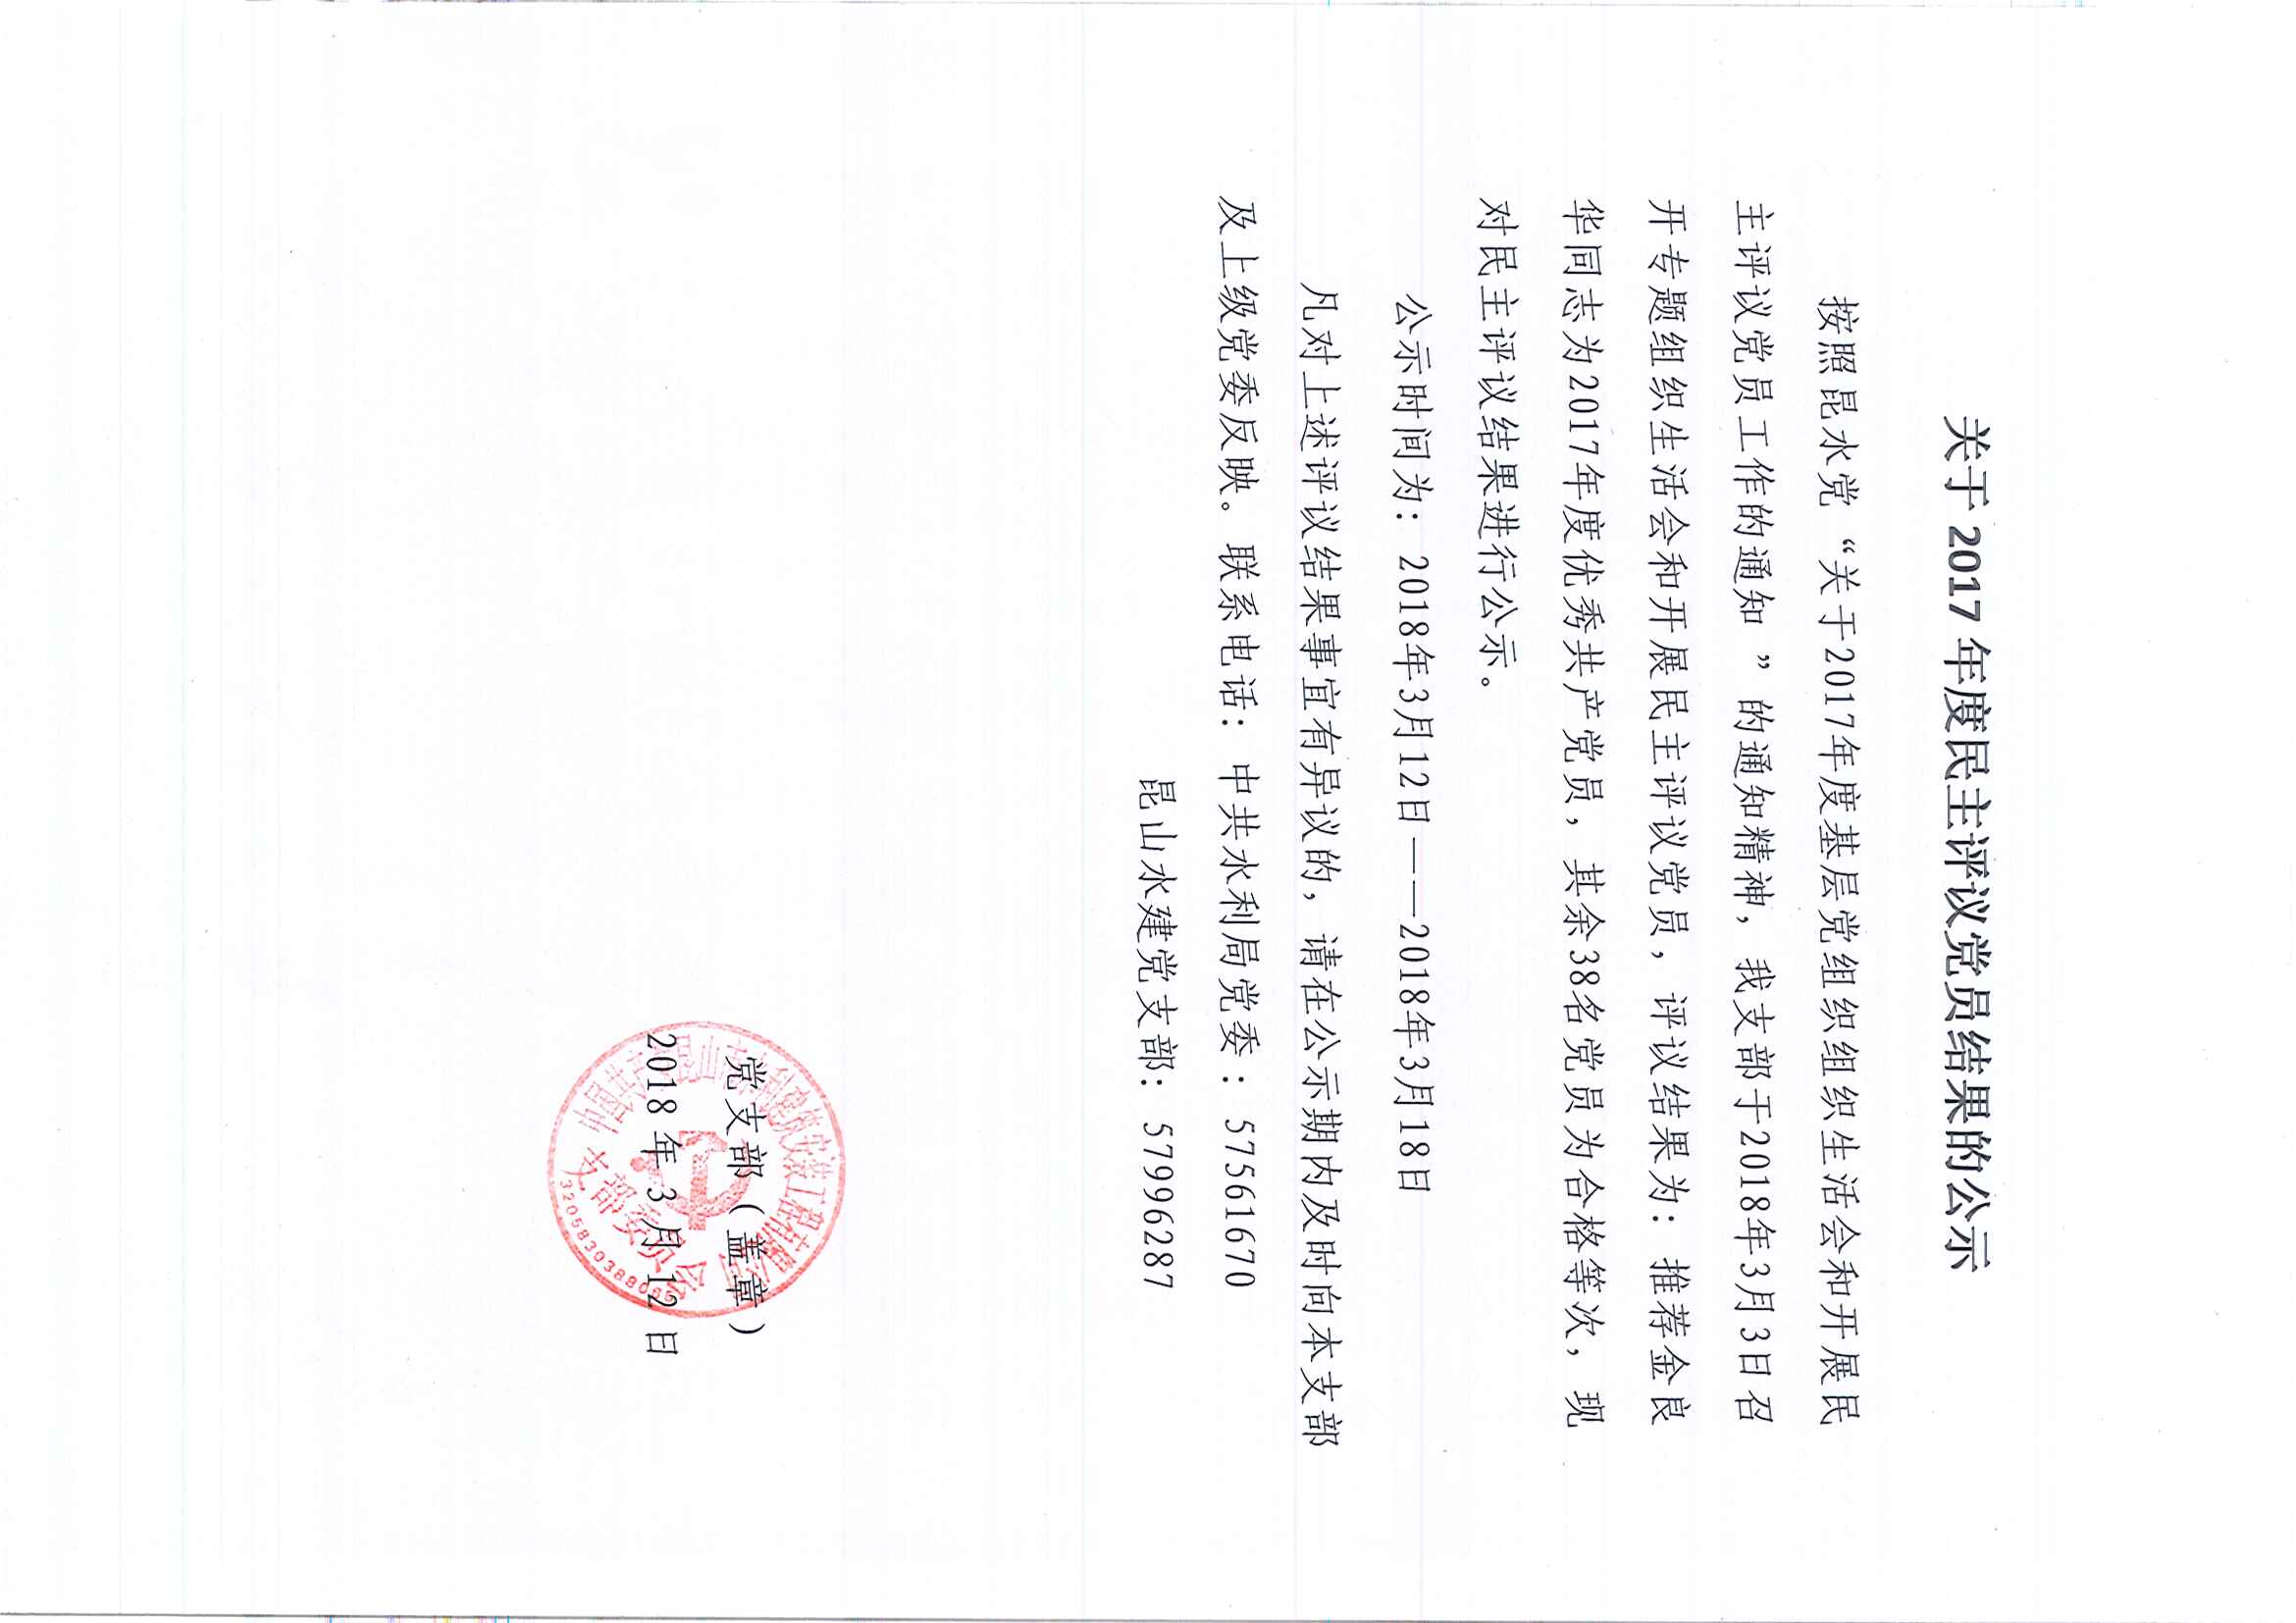 关于 2017 年度民主评议党员结果的公示
按照昆水党“关于2017年度基层党组织组织生活会和开展民
主评议党员工作的通知 ” 的通知精神，我支部于2018年3月3日召
开专题组织生活会和开展民主评议党员，评议结果为：推荐金良
华同志为2017年度优秀共产党员，其余38名党员为合格等次，现
对民主评议结果进行公示。
公示时间为：2018年3月12日——2018年3月18日
凡对上述评议结果事宜有异议的，请在公示期内及时向本支部
及上级党委反映。联系电话：中共水利局党委：57561670
昆山水建党支部：57996287
党支部（盖章）
2018 年 3 月 12 日
支部委员会